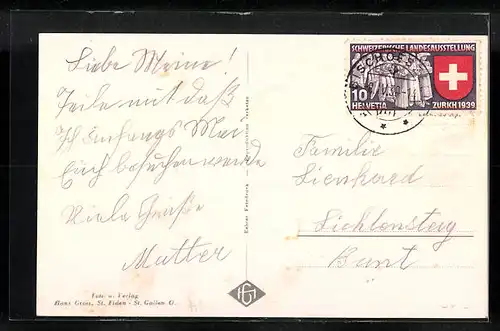 Liebe Meine!
Teile mit daß
Ich Anfangs Mai
Euch besuchen werde
Viele Grüße
Mutter
Foto u. Verlag
Hans Gross, St. Fiden - St. Gallen O.
SCHWEIZERISCHE LANDESAUSSTELLUNG
10
HELVETIA
ZURICH 1939
Familie
Lienhard
Lichtensteig
Bunt